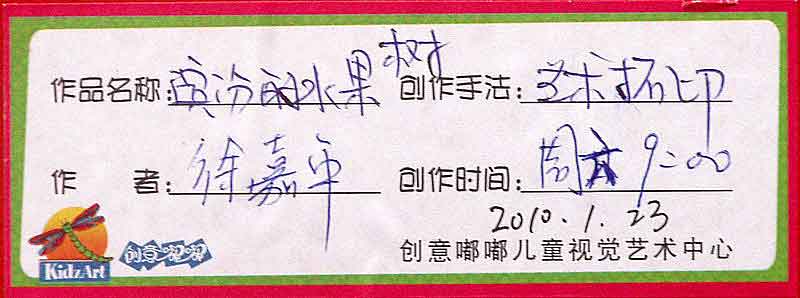 作品名称:缤汾的水果树 创作手法:艺术拓印
作 者:徐嘉平 创作时间:周六 9:00
2010.1.23
KidzArt 创意嘟嘟 创意嘟嘟儿童视觉艺术中心